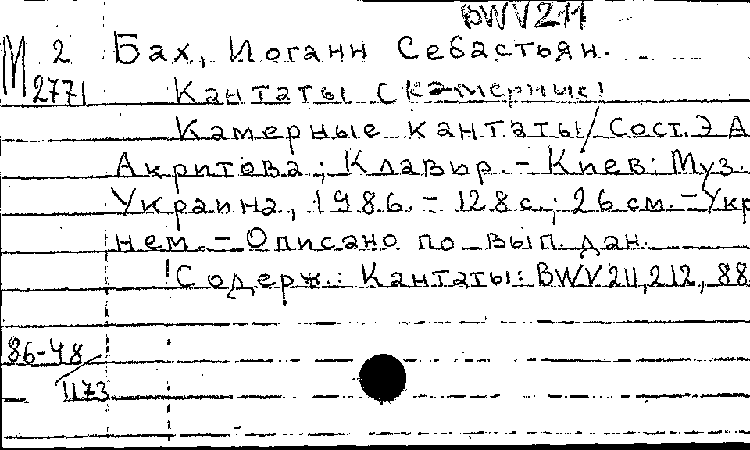 BWV211
М 2 Бах, Иоганн Себастьян.
2771 Кантаты (камерные)
Камерные кантаты/ Сост. Э.А.
Акритова; Клавир. - Киев: Муз.
Украина, 1986. - 128 с.; 26 см. - Укр
нем. - Описано по вып. дан.
Содерж.: Кантаты: BWV 211, 212, 88
86-48
1173